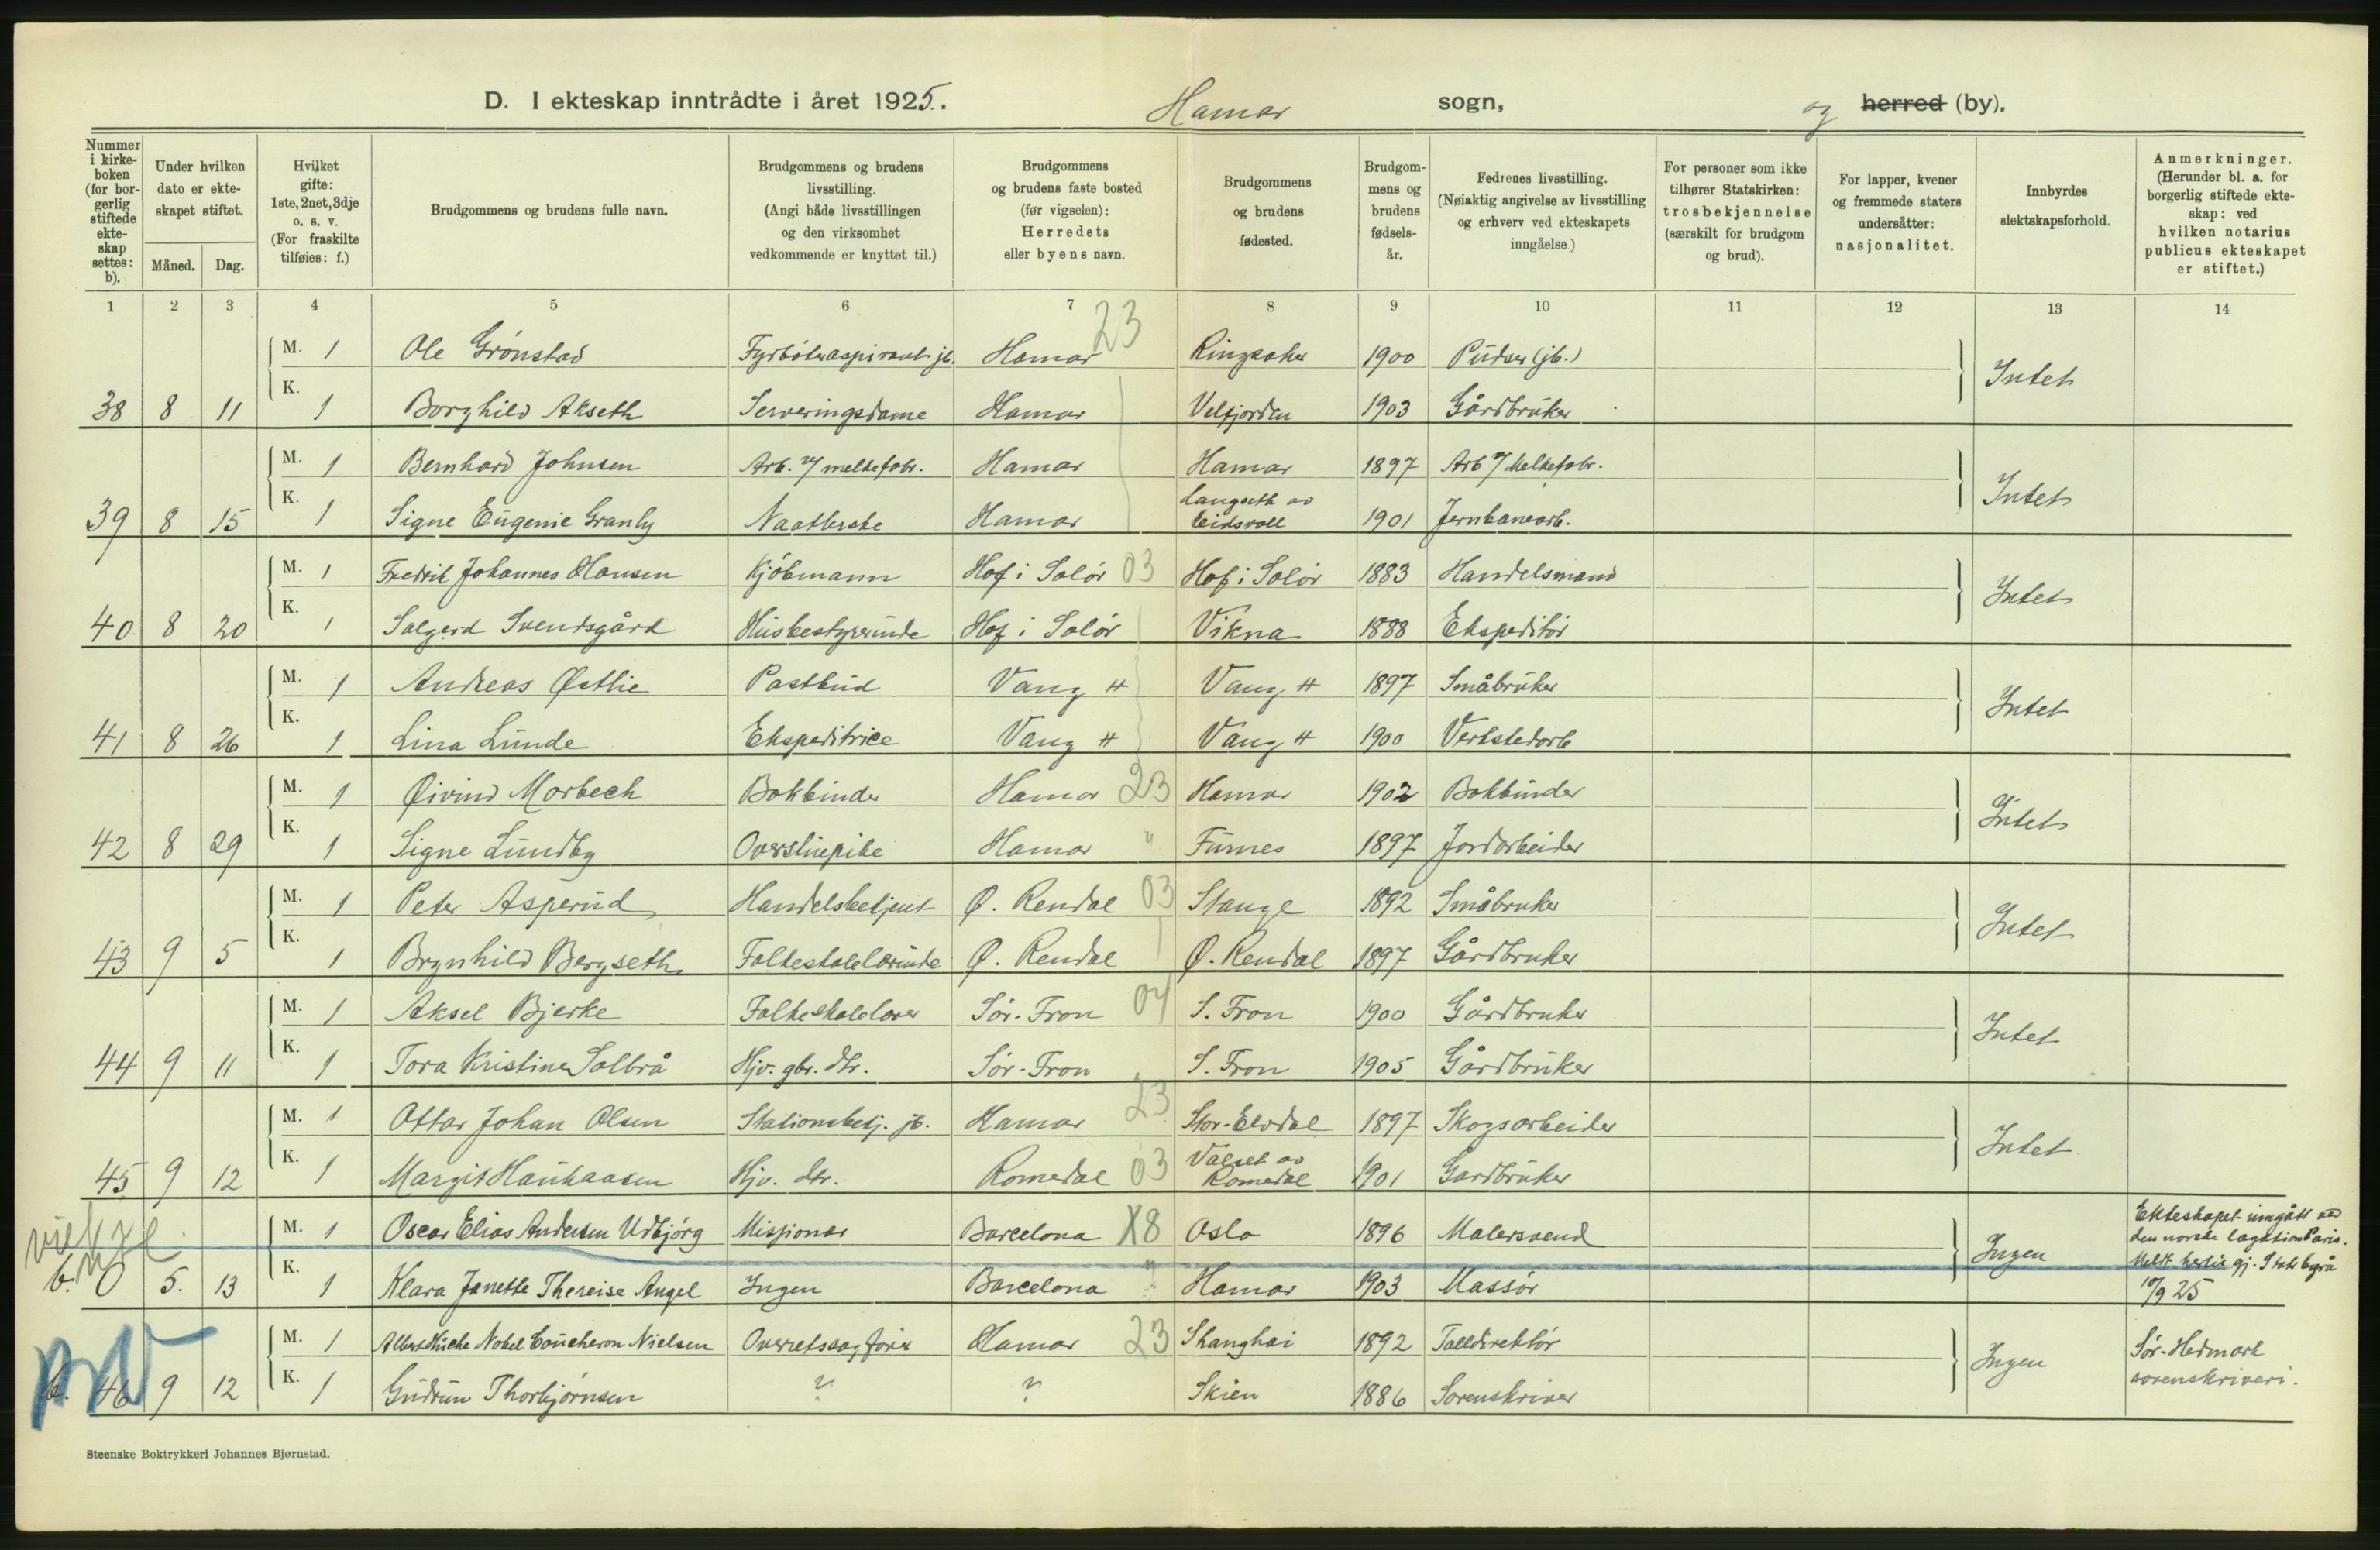 D. I ekteskap inntrådte i året 1925. Hamar sogn, og herred (by).
Nummer i kirkeboken (for borgerlig stiftede ekteskap settes: b).
Under hvilken dato er ekteskapet stiftet.
Måned. Dag.
Hvilket gifte: 1ste, 2net, 3dje o. s. v. (For fraskilte tilføies: f.)
Brudgommens og brudens fulle navn.
Brudgommens og brudens livsstilling. (Angi både livsstillingen og den virksomhet vedkommende er knyttet til.)
Brudgommens og brudens faste bosted (før vigselen): Herredets eller byens navn.
Brudgommens og brudens fødested.
Brudgommens og brudens fødselsår.
Fedrenes livsstilling. (Nøiaktig angivelse av livsstilling og erhverv ved ekteskapets inngåelse.)
For personer som ikke tilhører Statskirken: trosbekjennelse (særskilt for brudgom og brud).
For lapper, kvener og fremmede staters undersåtter: nasjonalitet.
Innbyrdes slektskapsforhold.
Anmerkninger. (Herunder bl. a. for borgerlig stiftede ekteskap: ved hvilken notarius publicus ekteskapet er stiftet.)
1 2 3 4 5 6 7 8 9 10 11 12 13 14
M. 1 Ole Grønstad Fyrbøteraspirant jb. Hamar 23 Ringsaker 1900 Pudser (jb.)
38 8 11 K. 1 Borghild Akseth Serveringsdame Hamar Velfjorden 1903 Gårdbruker Intet
M. 1 Bernhard Johnsen Arb. v/ melkefabr. Hamar Hamar 1897 Arb v/ Melkefabr.
39 8 15 K. 1 Signe Eugenie Granly Naatlerske Hamar Langseth av Eidsvoll 1901 Jernbanearb. Intet
M. 1 Fredrik Johannes Hansen Kjøbmann Hof i Solør 03 Hof i Solør 1883 Handelsmand
40 8 20 K. 1 Salgerd Svendsgård Husbestyrerinde Hof i Solør Vikna 1888 Ekspeditør Intet
M. 1 Andreas Østlie Postbud Vang H Vang H 1897 Småbruker
41 8 26 K. 1 Lina Lunde Ekspeditrice Vang H Vang H 1900 Verkstedarb Intet
M. 1 Øivind Morbech Bokbinder Hamar 23 Hamar 1902 Bokbinder
42 8 29 K. 1 Signe Lundby Overstuepike Hamar " Furnes 1897 Jordarbeider Intet
M. 1 Peter Asperud Handelsbetjent Ø. Rendal 03 Stange 1892 Småbruker
43 9 5 K. 1 Brynhild Bergseth Folkeskolelærinde Ø. Rendal Ø. Rendal 1897 Gårdbruker Intet
M. 1 Aksel Bjerke Folkeskolelærer Sør-Fron 04 S. Fron 1900 Gårdbruker
44 9 11 K. 1 Tora Kristine Solbrå Hjv. gbr. dtr. Sør-Fron S. Fron 1905 Gårdbruker Intet
M. 1 Ottar Johan Olsen Stationsbetj. jb. Hamar 23 Stor-Elvdal 1897 Skogsarbeider
45 9 12 K. 1 Margit Haukaasen Hjv. dtr. Romedal 03 Valset av Romedal 1901 Gardbruker Intet
M. 1 Oscar Elias Andersen Udbjørg Missjonær Barcelona X8 Oslo 1896 Malersvend
b. 0 5. 13 K. 1 Klara Janette Thereise Angel Ingen Barcelona " Hamar 1903 Massør Ingen
Ekteskapet inngått ved
den norske legation Paris.
Meldt hertil gj. Stat. byrå
10/9 25
M. 1 Nobel Coucheron Nielsen Overretssagfører Hamar 23 Shanghai 1892 Tolldirektør
b. 46 9 12 K. 1 Gudrun Thorbjørnsen ? ? Skien 1886 Sorenskriver Ingen
Sør-Hedmark
sorenskriveri.
Steenske Boktrykkeri Johannes Bjørnstad.